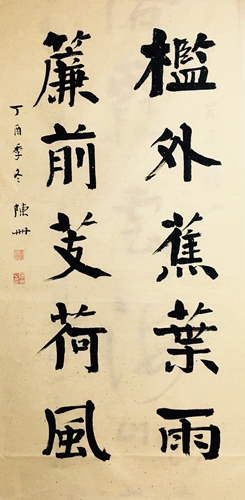 檻外蕉葉雨
簾前芰荷風
丁酉季冬 陳卌